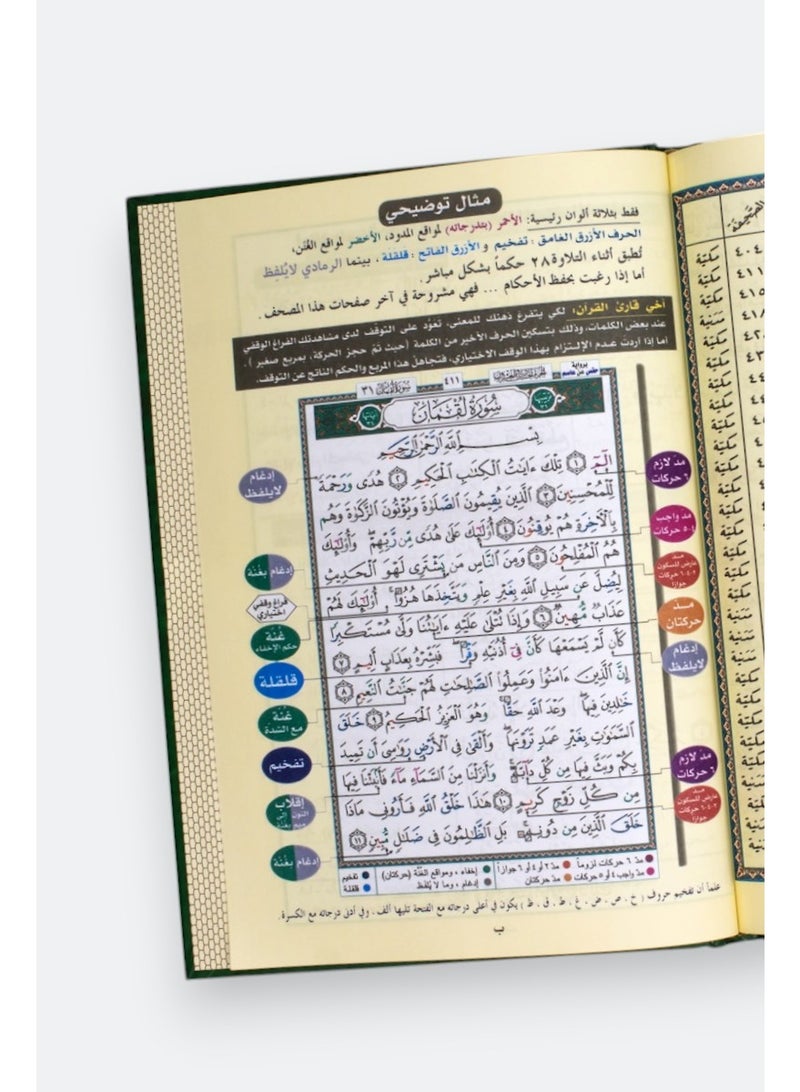 مثال توضيحي
فقط بثلاثة ألوان رئيسية: الأحمر (بتدرجاته) لمواقع المدود، الأخضر لمواقع الغُنَن،
الحرف الأزرق الغامق : تفخيم و الأزرق الفاتح : قلقلة ، بينما الرمادي لا يُلفظ
تُطبق أثناء التلاوة ٢٨ حكماً بشكل مباشر.
أما إذا رغبت بحفظ الأحكام ... فهي مشروحة في آخر صفحات هذا المصحف .
أخي قارئ القرآن: لكي يتفرغ ذهنك للمعنى، تعوّد على التوقف لدى مشاهدتك الفراغ الوقفي
عند بعض الكلمات، وذلك بتسكين الحرف الأخير من الكلمة (حيث تمّ حجز الحركة، بمربع صغير ).
أما إذا أردت عدم الإلتزام بهذا الوقف الاختياري، فتجاهل هذا المربع والحكم الناتج عن التوقف.
برواية
حفص عن عاصم
٤١١
سُورَةُ لُقْمَان ٣١
سُورَةُ لُقْمَان
بِسْمِ اللَّهِ الرَّحْمَٰنِ الرَّحِيمِ
الٓمٓ ١ تِلْكَ ءَايَٰتُ ٱلْكِتَٰبِ ٱلْحَكِيمِ ٢ هُدًى وَرَحْمَةً
لِّلْمُحْسِنِينَ ٣ ٱلَّذِينَ يُقِيمُونَ ٱلصَّلَوٰةَ وَيُؤْتُونَ ٱلزَّكَوٰةَ وَهُم
بِٱلْءَاخِرَةِ هُمْ يُوقِنُونَ ٤ أُو۟لَٰٓئِكَ عَلَىٰ هُدًى مِّن رَّبِّهِمْ وَأُو۟لَٰٓئِكَ
هُمُ ٱلْمُفْلِحُونَ ٥ وَمِنَ ٱلنَّاسِ مَن يَشْتَرِى لَهْوَ ٱلْحَدِيثِ
لِيُضِلَّ عَن سَبِيلِ ٱللَّهِ بِغَيْرِ عِلْمٍ وَيَتَّخِذَهَا هُزُوًا أُو۟لَٰٓئِكَ لَهُمْ
عَذَابٌ مُّهِينٌ ٦ وَإِذَا تُتْلَىٰ عَلَيْهِ ءَايَٰتُنَا وَلَّىٰ مُسْتَكْبِرًا
كَأَن لَّمْ يَسْمَعْهَا كَأَنَّ فِىٓ أُذُنَيْهِ وَقْرًا فَبَشِّرْهُ بِعَذَابٍ أَلِيمٍ ٧
إِنَّ ٱلَّذِينَ ءَامَنُوا۟ وَعَمِلُوا۟ ٱلصَّٰلِحَٰتِ لَهُمْ جَنَّٰتُ ٱلنَّعِيمِ ٨
خَٰلِدِينَ فِيهَا وَعْدَ ٱللَّهِ حَقًّا وَهُوَ ٱلْعَزِيزُ ٱلْحَكِيمُ ٩ خَلَقَ
ٱلسَّمَٰوَٰتِ بِغَيْرِ عَمَدٍ تَرَوْنَهَا وَأَلْقَىٰ فِى ٱلْأَرْضِ رَوَٰسِىَ أَن تَمِيدَ
بِكُمْ وَبَثَّ فِيهَا مِن كُلِّ دَآبَّةٍ وَأَنزَلْنَا مِنَ ٱلسَّمَآءِ مَآءً فَأَنۢبَتْنَا فِيهَا
مِن كُلِّ زَوْجٍ كَرِيمٍ ١٠ هَٰذَا خَلْقُ ٱللَّهِ فَأَرُونِى مَاذَا
خَلَقَ ٱلَّذِينَ مِن دُونِهِ بَلِ ٱلظَّٰلِمُونَ فِى ضَلَٰلٍ مُّبِينٍ ١١
مدّ لازم
٦ حركات
مدّ واجب
٤-٥ حركات
مدّ
عارض للسكون
٢-٤-٦ حركات
جوازاً
مدّ
حركتان
إدغام
لا يلفظ
مدّ لازم
٦ حركات
مدّ
عارض للسكون
٢-٤-٦ حركات
جوازاً
إدغام
لا يلفظ
إدغام بغُنّة
فراغ وقفي
اختياري
غُنّة
حكم الإخفاء
قلقلة
غُنّة
مع الشدّة
تفخيم
إقلاب
النون إلى
ميم بغنة
إدغام بغُنّة
مدّ ٦ حركات لزوماً مدّ ٢ أو ٤ أو ٦ جوازاً إخفاء، ومواقع الغُنّة (حركتان) تفخيم
مدّ واجب ٤ أو ٥ حركات مدّ حركتان إدغام ، وما لا يُلفظ قلقلة
علماً أن تفخيم حروف ( خ . ص . ض . غ . ط . ق . ظ ) يكون في أعلى درجاته مع الفتحة تليها ألف . وفي أدنى درجاته مع الكسرة .
ب
الصفحة
٤٠٤ مكيّة
٤١١ مكيّة
٤١٥ مكيّة